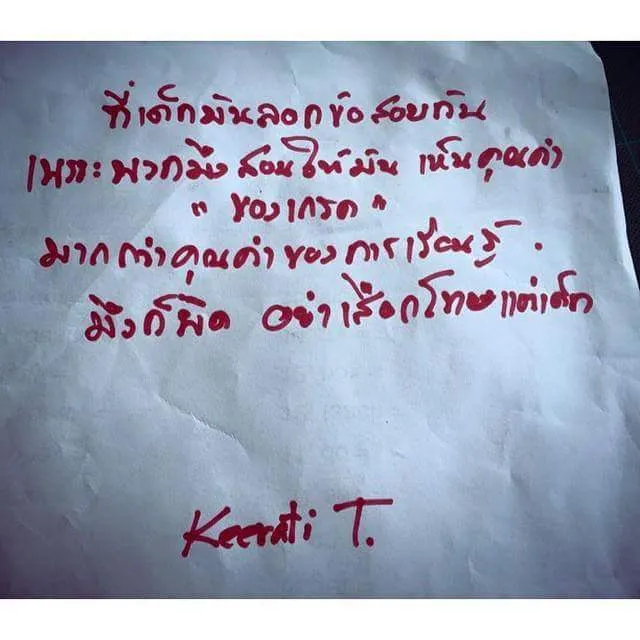 ที่เด็กมันลอกข้อสอบกัน
เพราะพวกมึงสอนให้มัน เห็นคุณค่า
" ของเกรด "
มากกว่าคุณค่าของการเรียนรู้ .
มึงก็ผิด อย่าเลือกโทษแต่เด็ก
Keerati T.